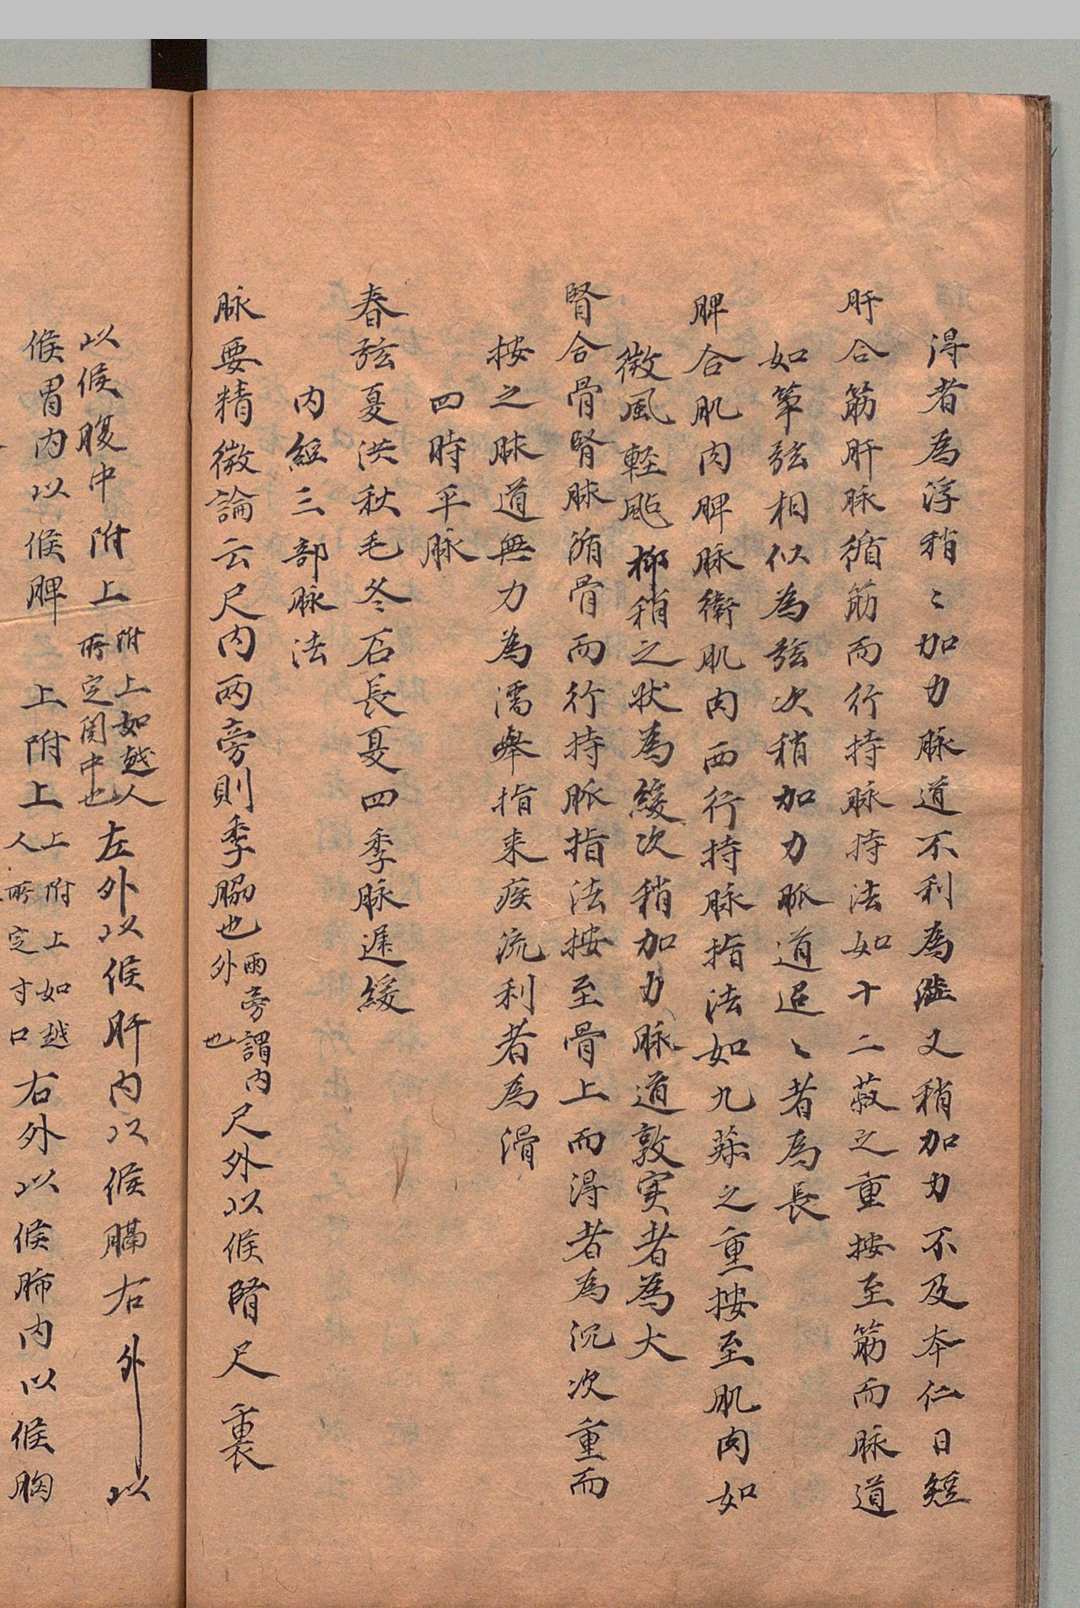 得者為浮稍〻加力脉道不利為澁又稍加力不及本仁日短
肝合筋肝脉循筋而行持脉持法如十二菽之重按至筋而脉道
如筝弦相似為弦次稍加力脈道迢〻者為長
脾合肌肉脾脉衛肌肉而行持脉指法如九菽之重按至肌肉如
微風軽颭柳稍之状為緩次稍加力脉道敦实者為大
腎合骨腎脉循骨而行持脈指法按至骨上而得者為沉次重而
按之脉道無力為濡舉指来疾流利者為滑
四時平脉
春弦夏洪秋毛冬石長夏四季脉遅緩
内経三部脉法
脉要精微論云尺内两旁則季脇也
両旁謂内
外也
尺外以候腎尺裏
以候腹中附上
附上如越人
所定関中也
左外以候肝内以候膈右外以
候胃内以候脾上附上
上附上如越
人所定寸口
右外以候肺内以候胸